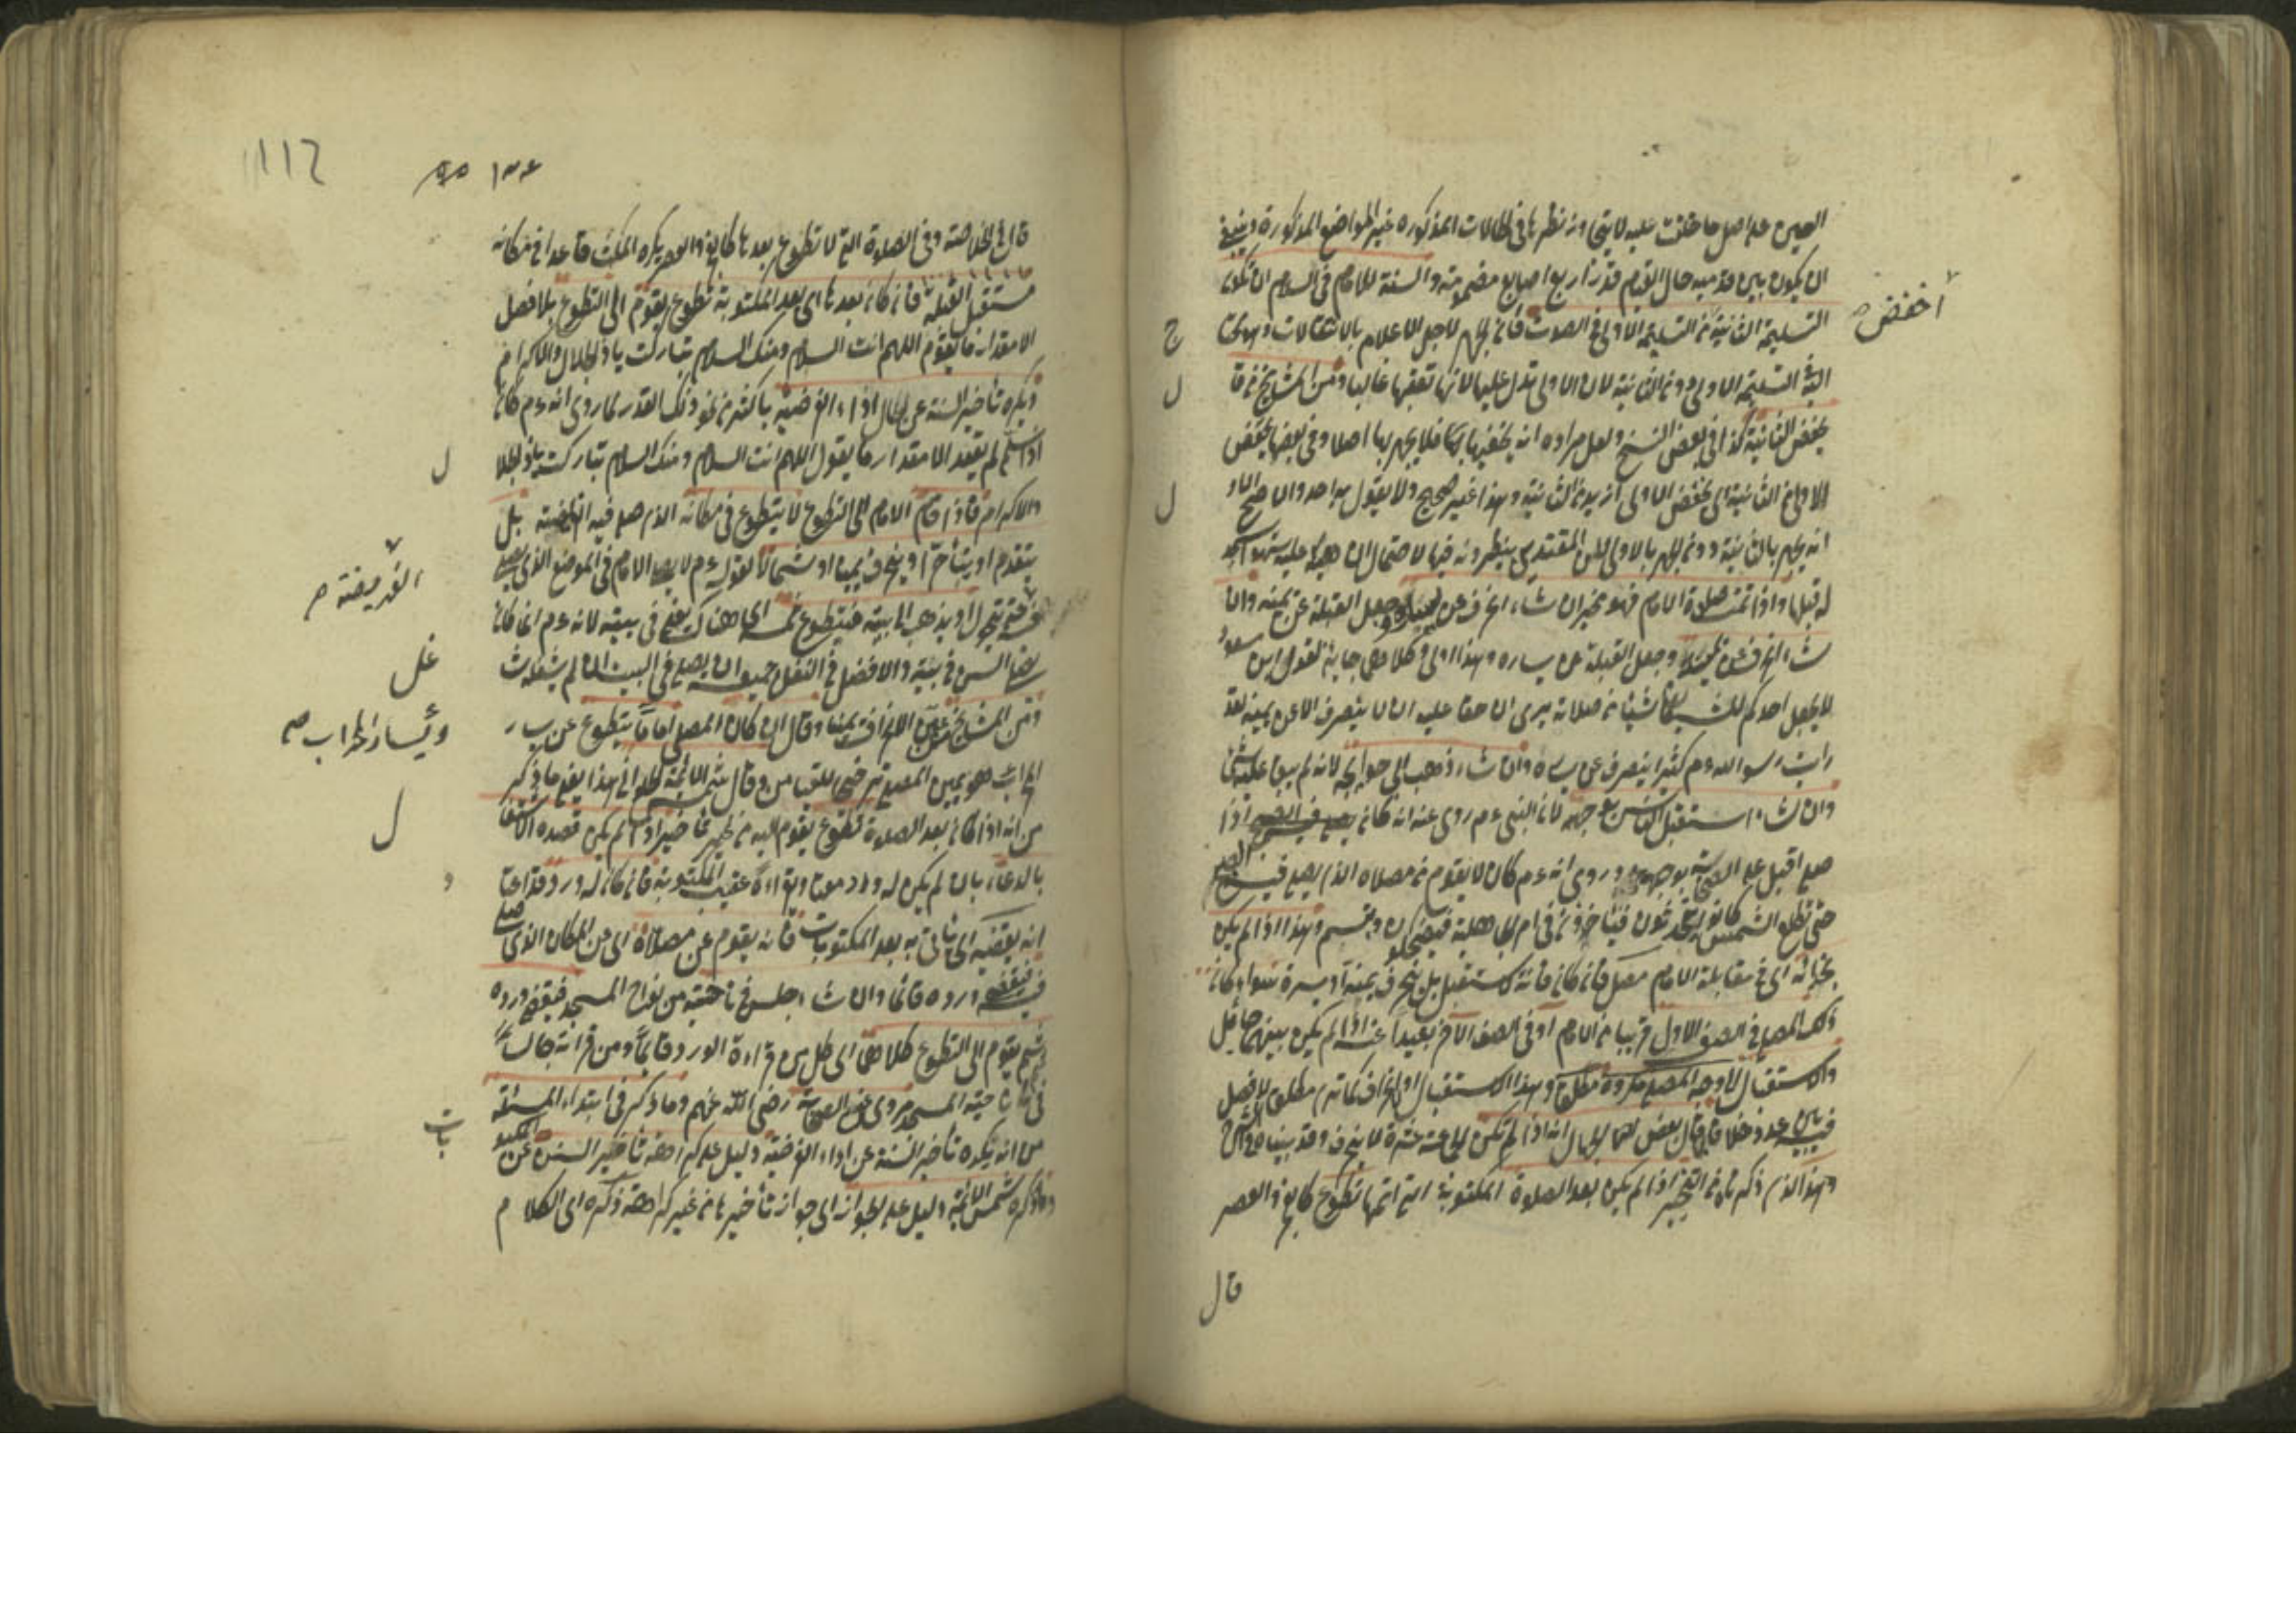 العين على اصل ما خلقت عليه لا يتجاوز نظرها في الحالات المذكورة غير المواضع المذكورة وينبغي
ان يكون بين قدميه حال القيام قدر اربع اصابع مضمومة والسنة للامام في السلام ان تكون
التسليمة الثانية من التسليمة الاولى في الصوت فان الجهر لاجل الاعلام بالانتقالات
التسليمة الاولى دون الثانية لان الاولى تدل عليها لانها تعقبها غالبا ومن المشايخ من قال
يخفض الثانية كذا في بعض النسخ ولعل مراده انه يخفيها فلا يجهر بها اصلا وفي بعضها يخفض
الاولى الثانية اي يخفض الاولى ازيد من الثانية وهذا غير صحيح ولا يقول به احد والاصح
انه يجهر بالثانية دون الجهر بالاولى لان المقتدين ينتظرونه فيها لاحتمال ان عليه سهوا سجد
له قبلها واذا تمت صلاة الامام فهو مخير ان شاء انحرف عن يساره وجعل القبلة عن يمينه وان
شاء انحرف عن يمينه وجعل القبلة عن يساره وهذا اولى لقول ابن مسعود
لا يجعل احدكم للشيطان شيئا من صلاته يرى ان حقا عليه ان لا ينصرف الا عن يمينه لقد
رايت رسول الله عم كثيرا ينصرف عن يساره وان شاء ذهب الى حوائجه لانه لم يبق عليه شيء
وان شاء استقبل الناس بوجهه لان النبي عم روي عنه انه كان اذا
صلى اقبل على الصحابة بوجهه وروي انه عم كان لا يقوم من مصلاه الذي يصلي فيه الصبح
حتى تطلع الشمس كانوا يتحدثون فياخذون في امر الجاهلية فيضحكون ويتبسم وهذا اذا لم يكن
بحذائه اي في مقابلة الامام مصل فان كان فانه لا يستقبل بل ينحرف يمينا او يسرة سواء كان
ذلك المصلي في الصف الاول قريبا من الامام او في الصف الاخر بعيدا عنه اذا لم يكن بينهما حائل
والاستقبال الى وجه المصلي مكروه مطلقا وهذا الاستقبال او الانحراف مطلق لا فصل
فيه بين عدد خلافا لما قال بعض الجهال انه اذا لم تكن الجماعة عشرة لا ينحرف وقد بيناه في الشرح
وهذا الذي ذكرناه من التخيير اذا لم يكن بعد الصلوة المكتوبة التي اتمها تطوع كالفجر والعصر
قال
أخفض
ج
ل
ل
112
١٣٤
قال في الخلاصة وفي الصلوة التي لا تطوع بعدها كالفجر والعصر يكره المكث قاعدا في مكانه
مستقبل القبلة فان كان بعدها اي بعد المكتوبة تطوع يقوم الى التطوع بلا فصل
الا مقدار ما يقول اللهم انت السلام ومنك السلام تباركت ياذا الجلال والاكرام
ويكره تأخير السنة عن حال اداء الفريضة باكثر من نحو ذلك القدر لما روي انه عم كان
اذا سلم لم يقعد الا مقدار ما يقول اللهم انت السلام ومنك السلام تباركت ياذا الجلال
والاكرام فاذا قام الامام الى التطوع لا يتطوع في مكانه الذي صلى فيه الفريضة بل
يتقدم او يتأخر او ينحرف يمينا او شمالا لقوله عم لا يصلي الامام في الموضع الذي صلى
فيه حتى يتحول او يذهب الى بيته فيتطوع ثمه اي هناك يعني في بيته لانه عم انما كان
يصلي السنن في بيته والافضل في النفل جميعه ان يصلى في البيت ان لم يشغله شاغل
ومن المشايخ من عين الانحراف يمينا وقال ان كان المصلي اماما يتطوع عن يسار
المحراب هو يمين المصلي ترجيحا للتيامن وقال شمس الائمة الحلواني هذا يعني ما ذكر
من انه اذا كان بعد الصلوة تطوع يقوم اليه من غير تاخير اذا لم يكن قصده الاشتغال
بالدعاء بان لم يكن له ورد عقيب المكتوبة فان كان له ورد
انه يقضيه اي ياتي به بعد المكتوبات فانه يقوم عن مصلاه اي عن المكان الذي صلى
فيه فيقضي ورده قائما وان شاء جلس في ناحية من نواح المسجد فيقضي ورده
ثم يقوم الى التطوع كلاهما اي كل من قراءة الورد قائما ومن قرائته جالسا
في ناحية المسجد مروي عن الصحابة رضي الله عنهم وما ذكر في ابتداء المسئلة
من انه يكره تأخير السنة عن اداء الفريضة دليل على كراهة تأخير السنن عن
وما ذكره شمس الائمة دليل على الجواز اي جواز تأخيرها من غير كراهة ذكره اي الكلام
ل
الفريضة
غل
ويسار المحراب
ل